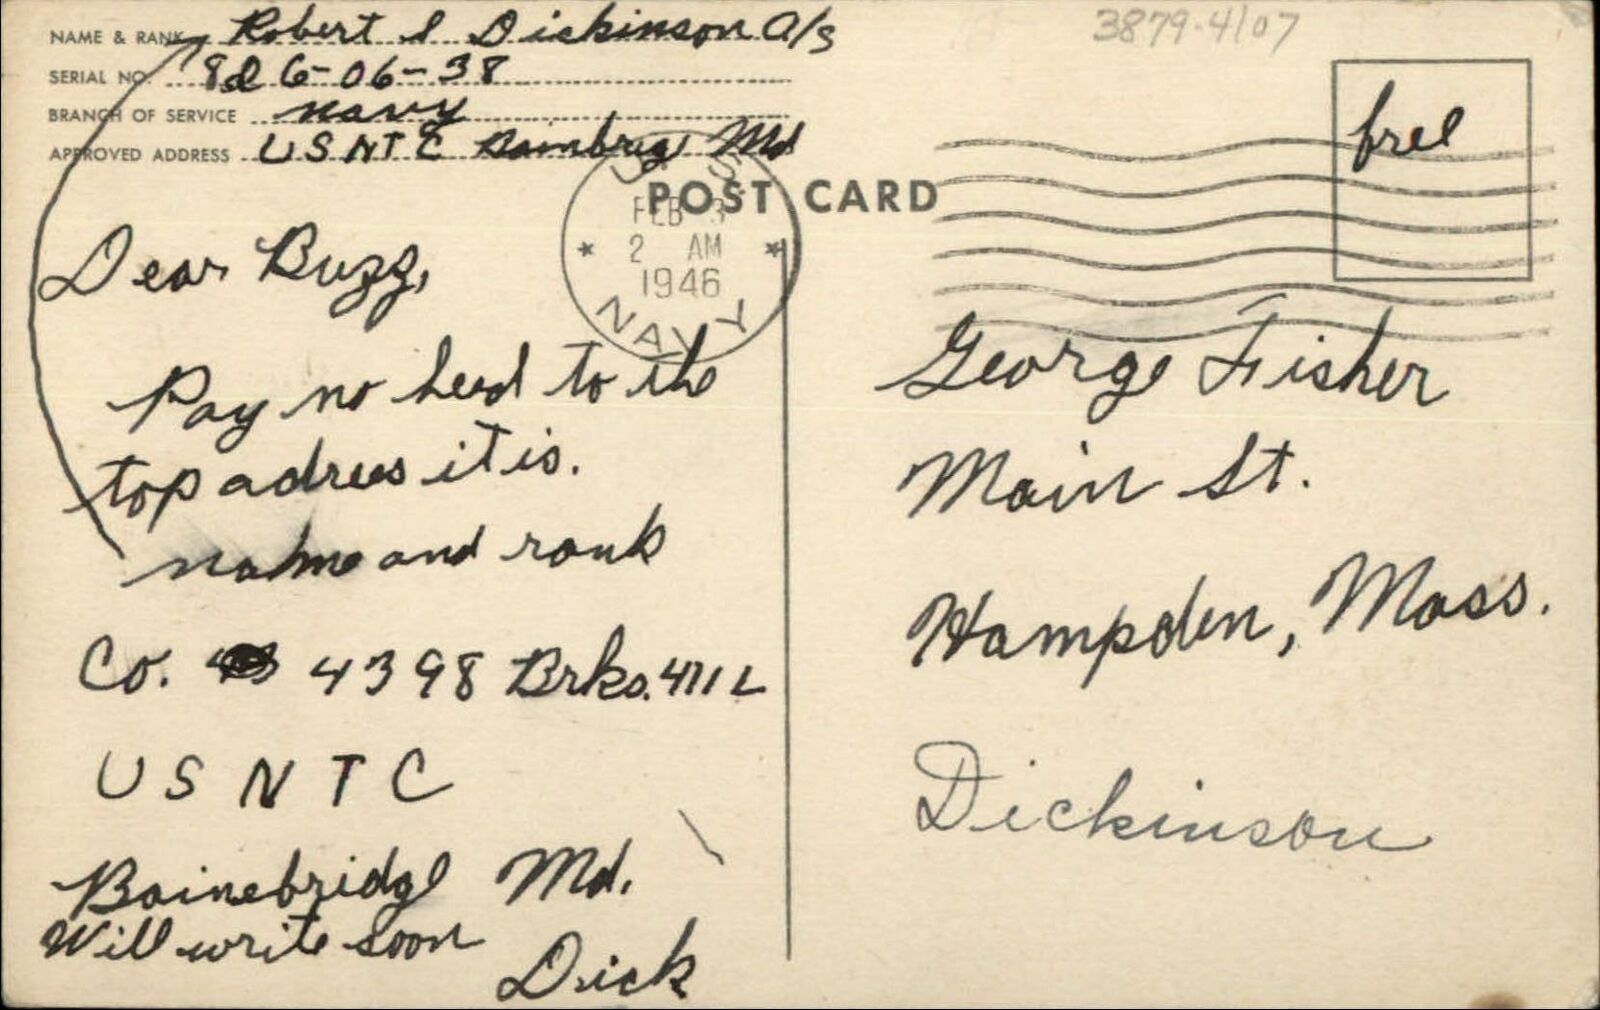 3879-4107
NAME & RANK Robert S Dickinson A/S
SERIAL NO. 9826-06-38
BRANCH OF SERVICE Navy
APPROVED ADDRESS USNTC Bambrig Md
POST CARD
U. S.
FEB 3
2 AM
1946
NAVY
free
Dear Buzz,
Pay no head to the
top adrees it is.
name and rank
Co. 4398 Brks. 411 L
USNTC
Bainebridge Md.
Will write soon
Dick
George Fisher
Main St.
Hampden, Mass.
Dickinson